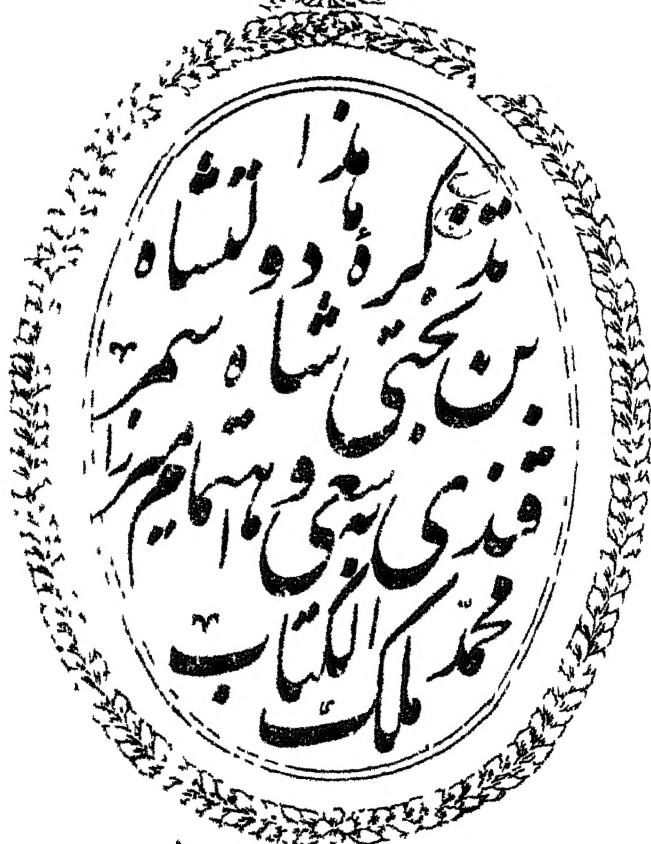 هذا
تذکرهٔ دولتشاه
بن بختی شاه سمر
قندی به سعی و اهتمام میرزا
محمّد ملک الکتاب